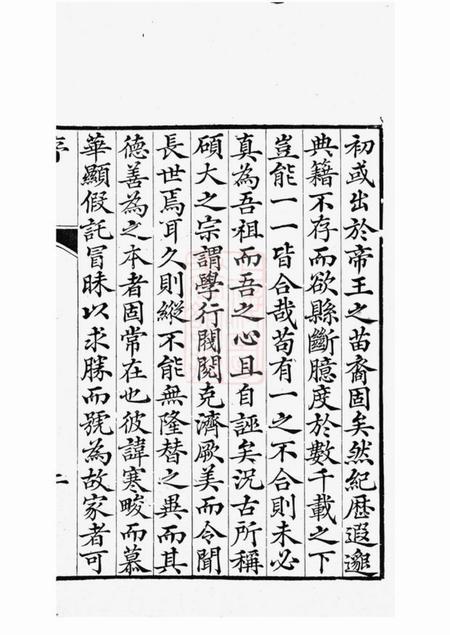 初或出於帝王之苗裔固矣然紀歷遐邈
典籍不存而欲縣斷臆度於數千載之下
豈能一一皆合哉苟有一之不合則未必
真為吾祖而吾之心且自誣矣況古所稱
碩大之宗謂學行閥閱克濟厥美而令聞
長世焉耳久則縱不能無隆替之異而其
德善為之本者固常在也彼諱寒畯而慕
華顯假託冒昧以求勝而號為故家者可
序
二